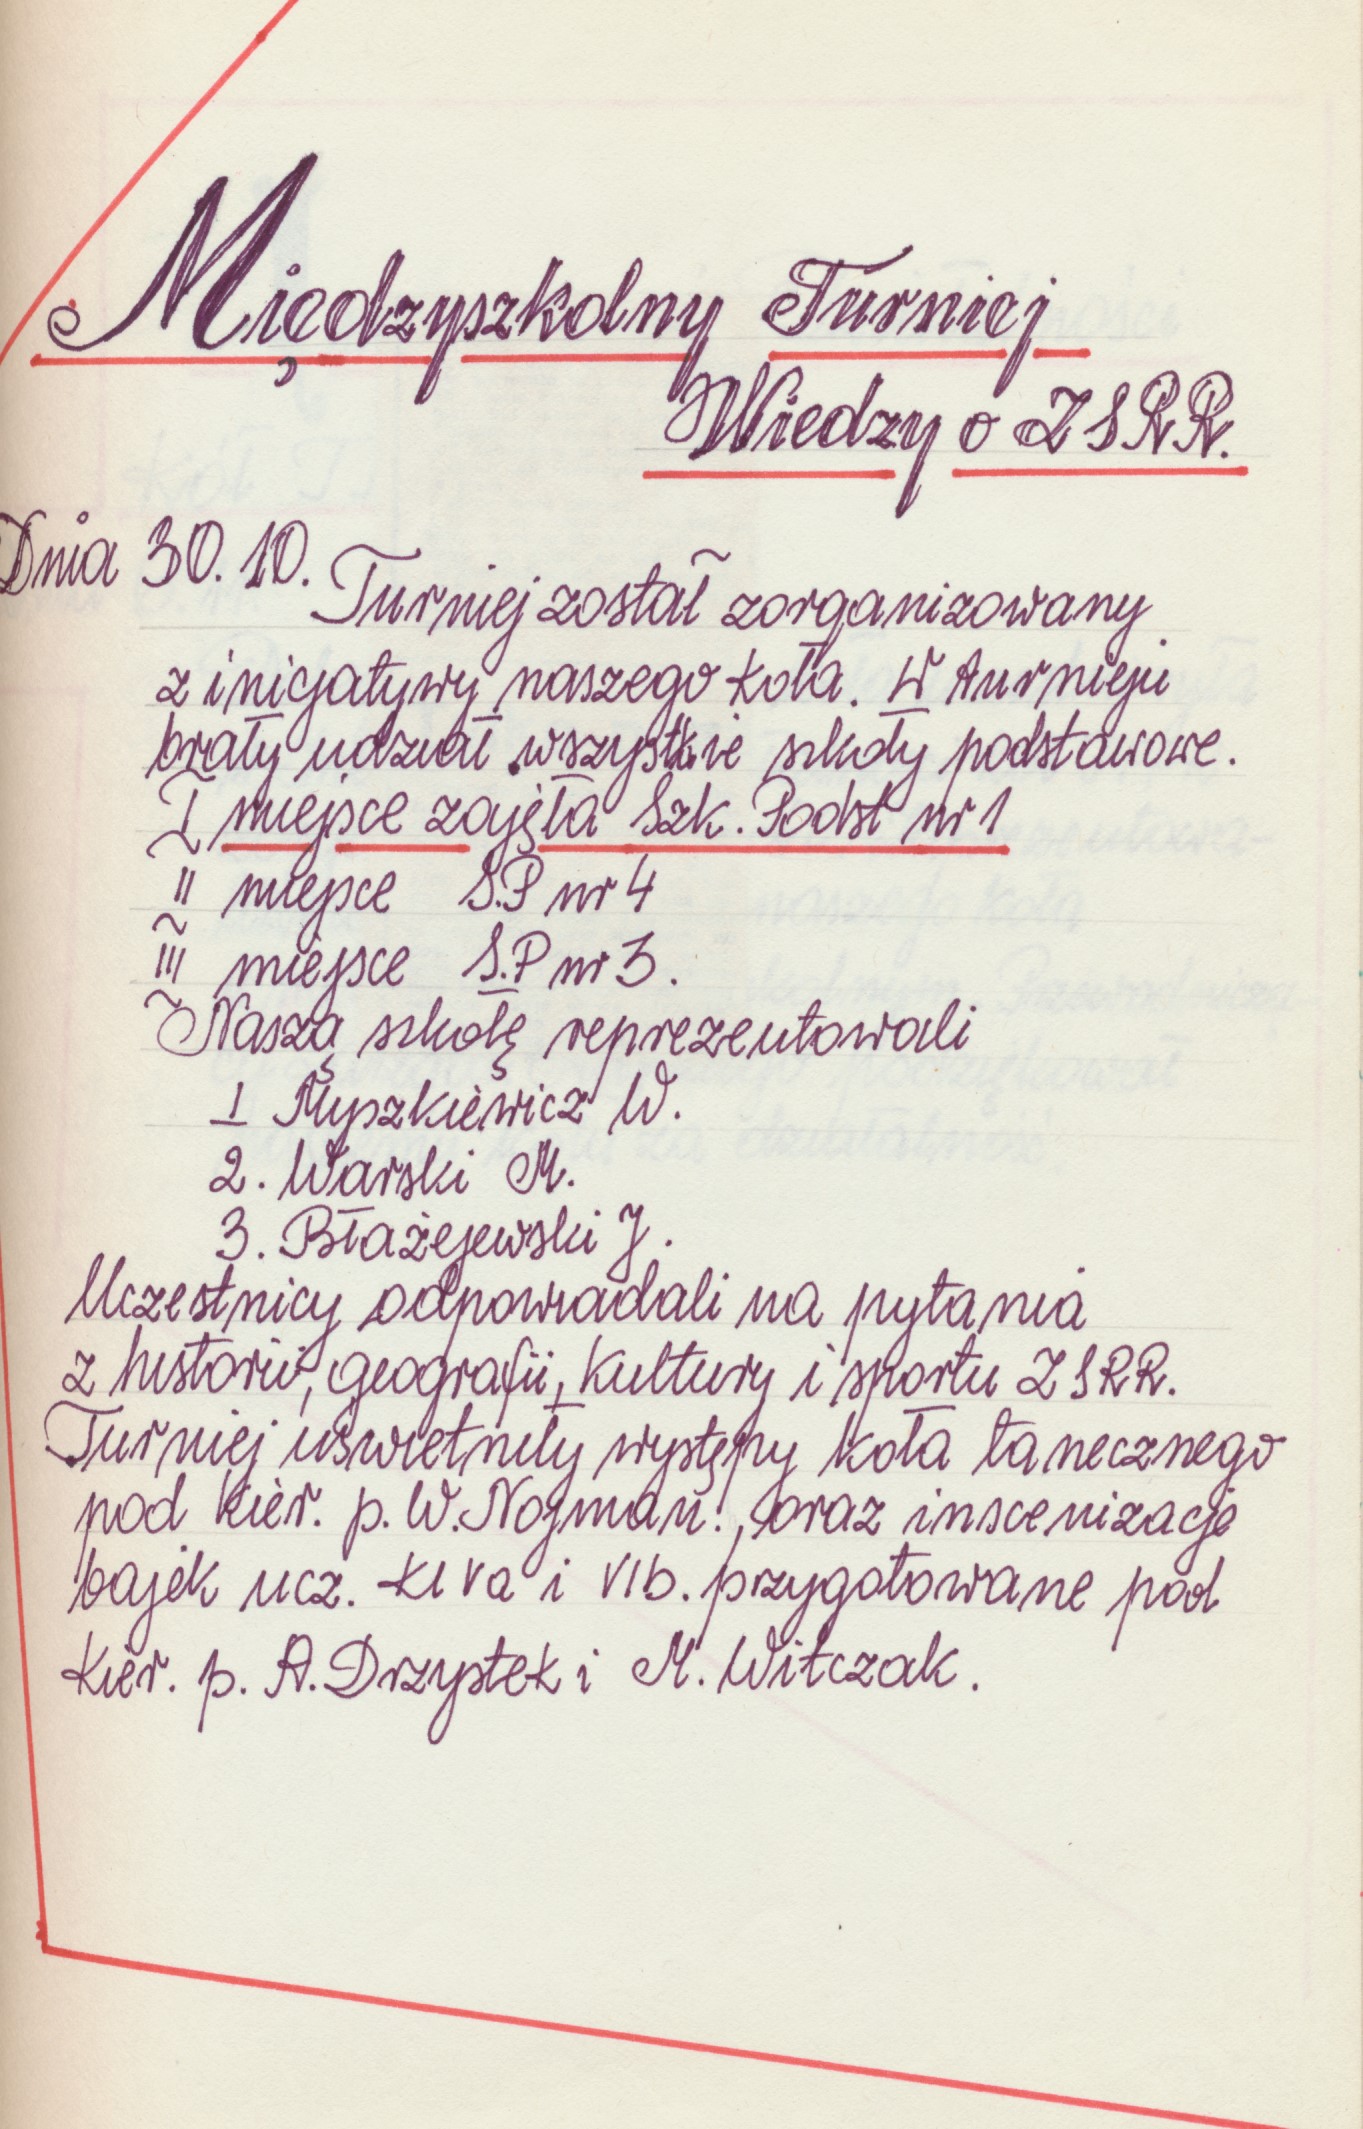 Międzyszkolny Turniej
Wiedzy o ZSRR.
Dnia 30.10.
Turniej został zorganizowany
z inicjatywy naszego koła. W turnieju
brały udział wszystkie szkoły podstawowe.
I miejsce zajęła Szk. Podst nr 1
II miejsce S.P nr 4
III miejsce S.P nr 3.
Naszą szkołę reprezentowali
1 Myszkiewicz W.
2. Warski M.
3. Błażejewski J.
Uczestnicy odpowiadali na pytania
z historii, geografii, kultury i sportu ZSRR.
Turniej uświetniły występy koła tanecznego
pod kier. p. W. Nojman., oraz inscenizacje
bajek ucz. kl Va i VIb. przygotowane pod
kier. p. A. Drzystek i M. Witczak.